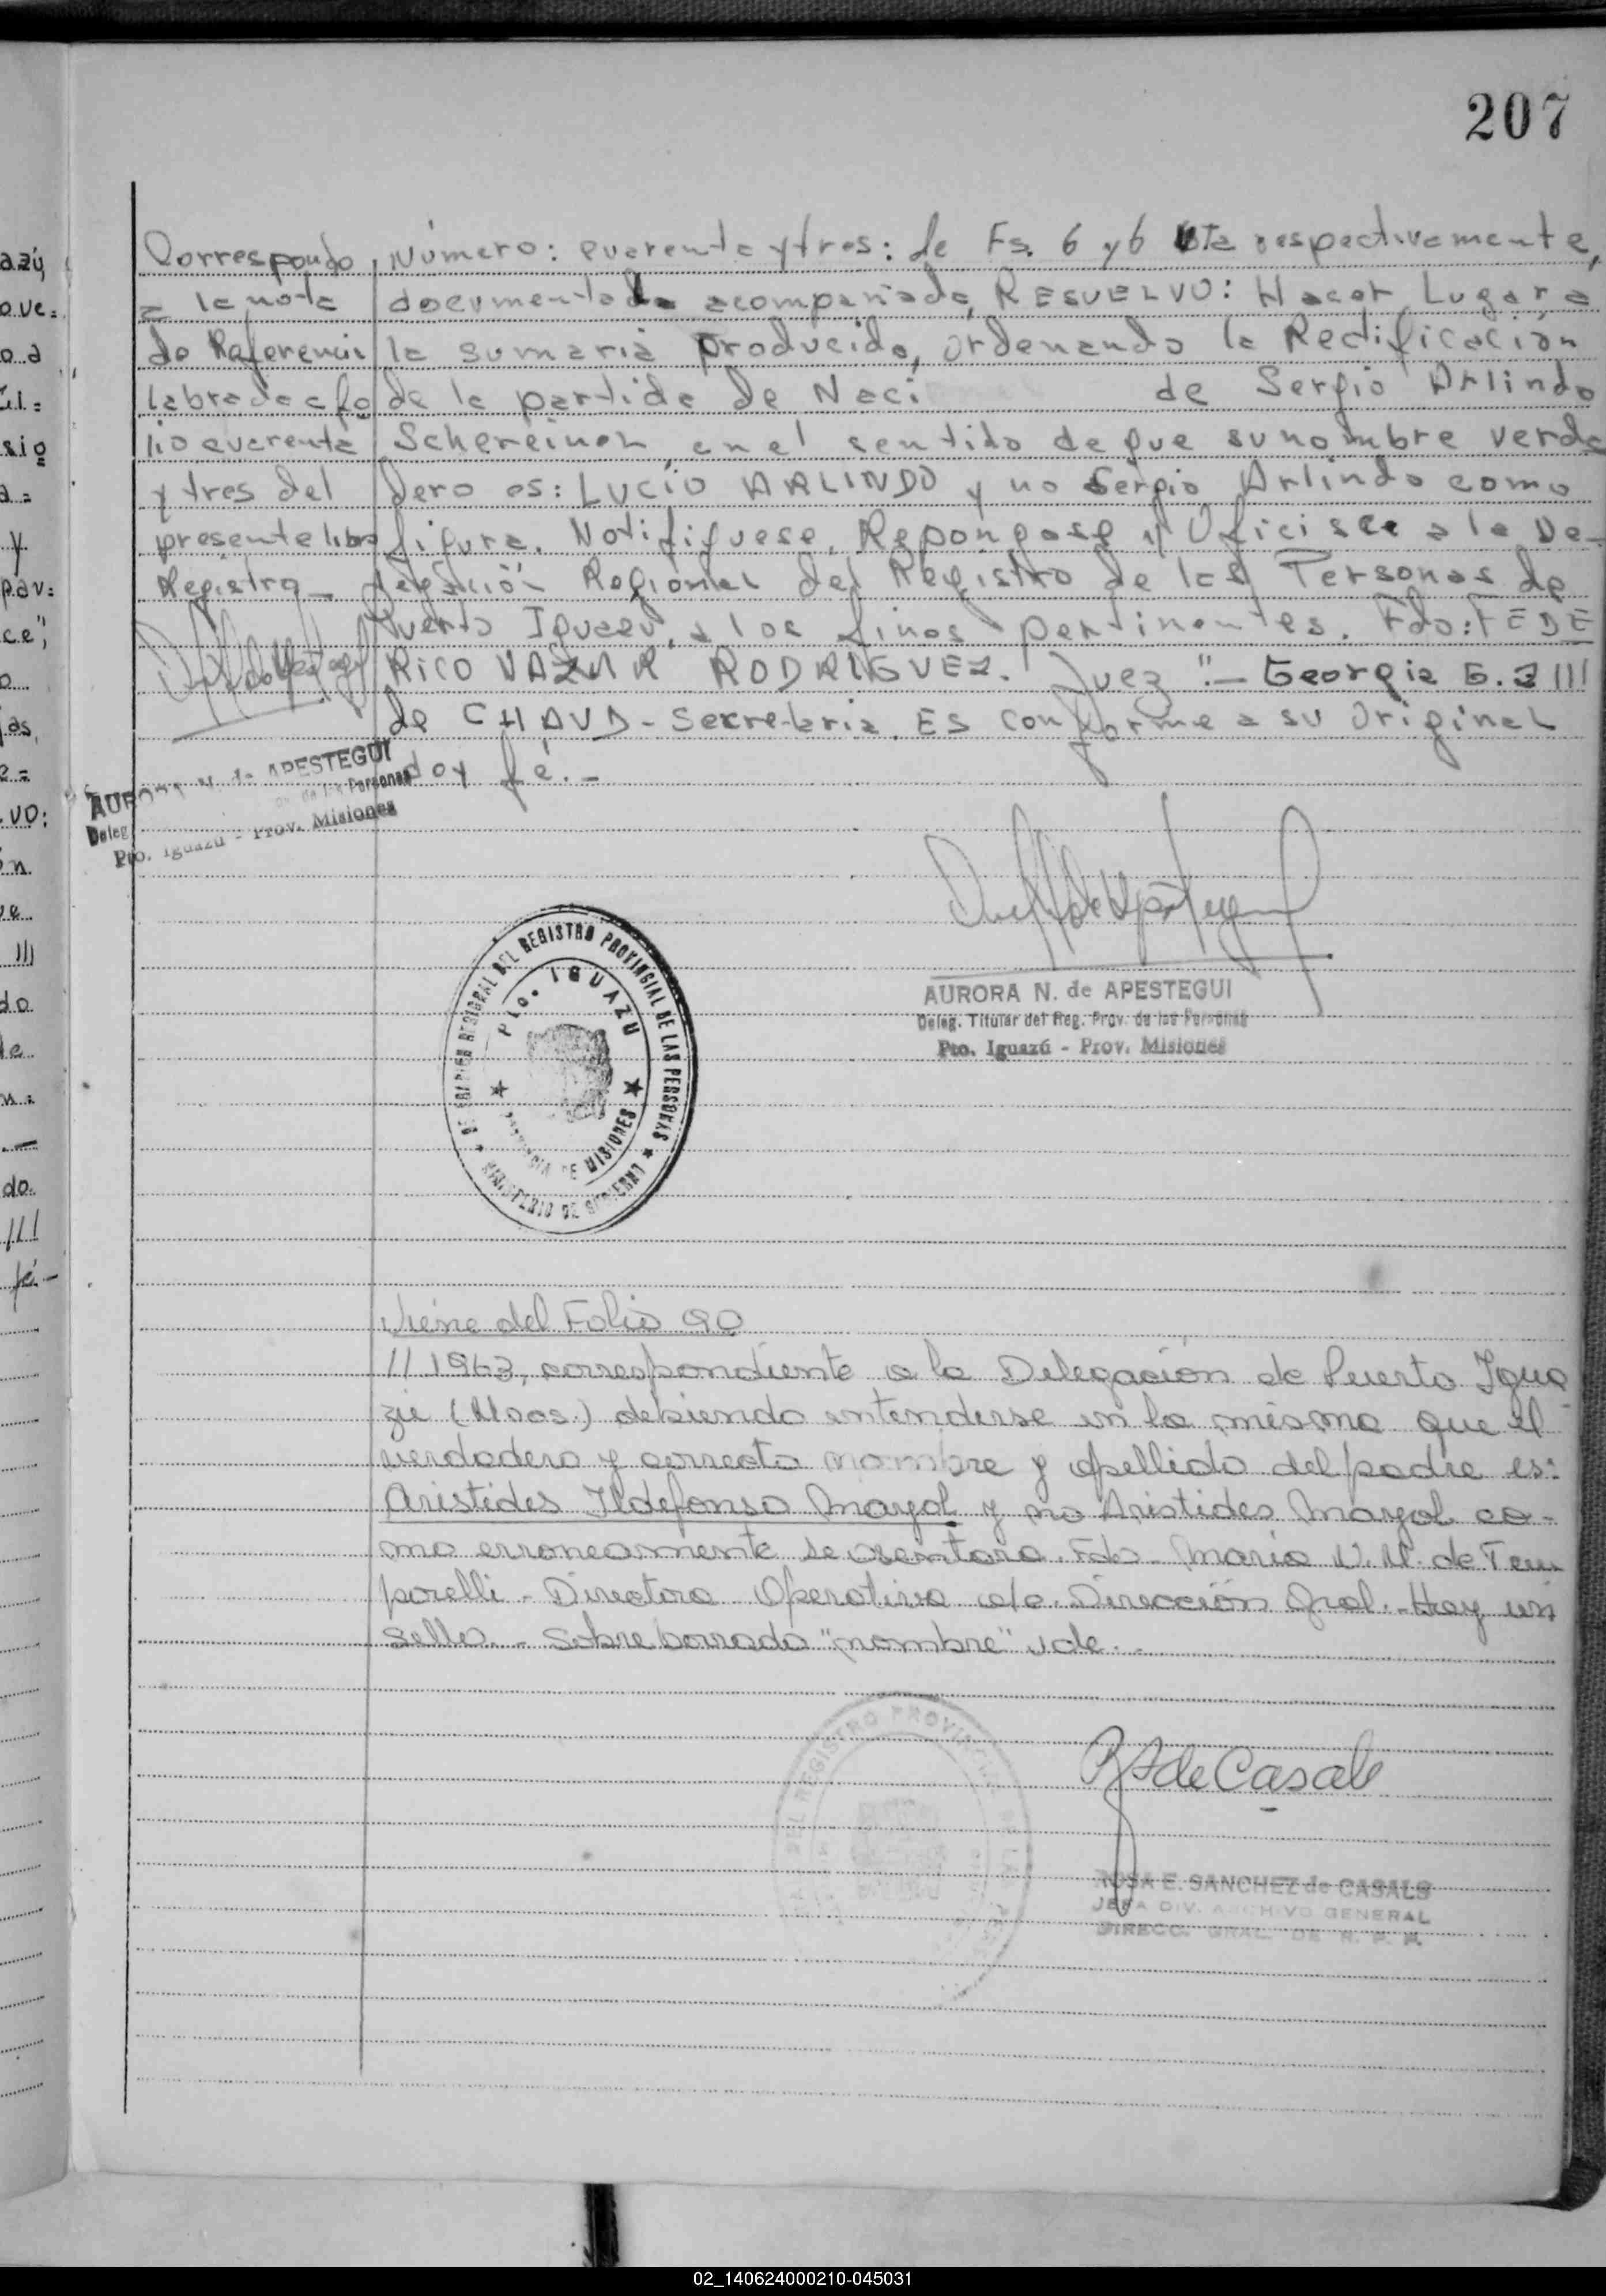 207
Corresponde
a la nota
de Referencia
labrada a fo
lio cuarenta
y tres del
presente libro
Registro_
Número: cuarenta y tres: de Fs. 6 y 6 vta respectivamente,
documentada acompañada, RESUELVO: Hacer Lugar a
la sumaria producida, ordenando la Rectificación
de la partida de Naci de Sergio Arlindo
Schereiner, en el sentido de que su nombre verda
dero es: LUCIO ARLINDO y no Sergio Arlindo como
figura. Notifiquese, Repongase y Oficiese a la De-
legación Regional del Registro de las Personas de
Puerto Iguazú, a los fines pertinentes. Fdo: FEDE
RICO RODRIGUEZ. Juez".- Georgia G. III
de CHAVD - Secretaria. Es conforme a su original
doy fé.-
AURORA N. de APESTEGUI
Deleg de las Personas
Pto. Iguazú - Prov. Misiones
AURORA N. de APESTEGUI
Deleg. Titular del Reg. Prov. de las Personas
Pto. Iguazú - Prov. Misiones
REGIONAL DEL REGISTRO PROVINCIAL DE LAS PERSONAS
MINISTERIO DE GOBIERNO
Pto. IGUAZU
PROVINCIA DE MISIONES
Viene del Folio 90
// 1963, correspondiente a la Delegación de Puerto Igua
zú (Mnes.) debiendo entenderse en la misma que el
verdadero y correcto nombre y apellido del padre es:
Aristides Ildefonso Mayol y no Aristides Mayol co-
mo erroneamente se asentara. Fdo- María V. M. de Tem
porelli - Directora Operativa a/c Dirección Gral.- Hay un
sello.- Sobre borrado "nombre" vale.-
DEL REGISTRO PROVINCIAL
RS de Casals
ROSA E. SANCHEZ de CASALS
JEFA DIV. ARCHIVO GENERAL
DIRECC. GRAL. DE R. P. P.
02_140624000210-045031